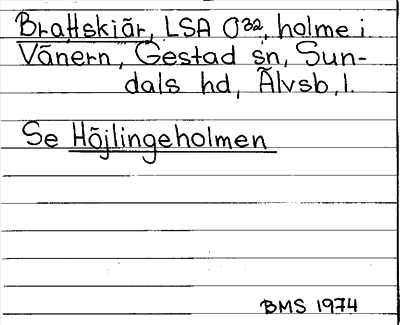 Brattskiãr, LSA O³², holme i
Vãnern, Gestad sn, Sun-
dals hd, Ãlvsb, l.
Se Hõjlingeholmen
BMS 1974